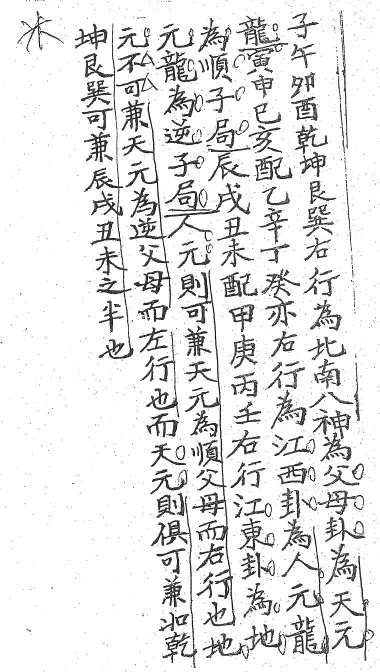 子午卯酉乾坤艮巽右行為北南八神為父母卦為天元
龍寅申巳亥配乙辛丁癸亦右行為江西卦為人元龍
為順子局辰戌丑未配甲庚丙壬右行江東卦為地
元龍為逆子局人元則可兼天元為順父母而右行也地
元不可兼天元為逆父母而左行也而天元則俱可兼如乾
坤艮巽可兼辰戌丑未之半也